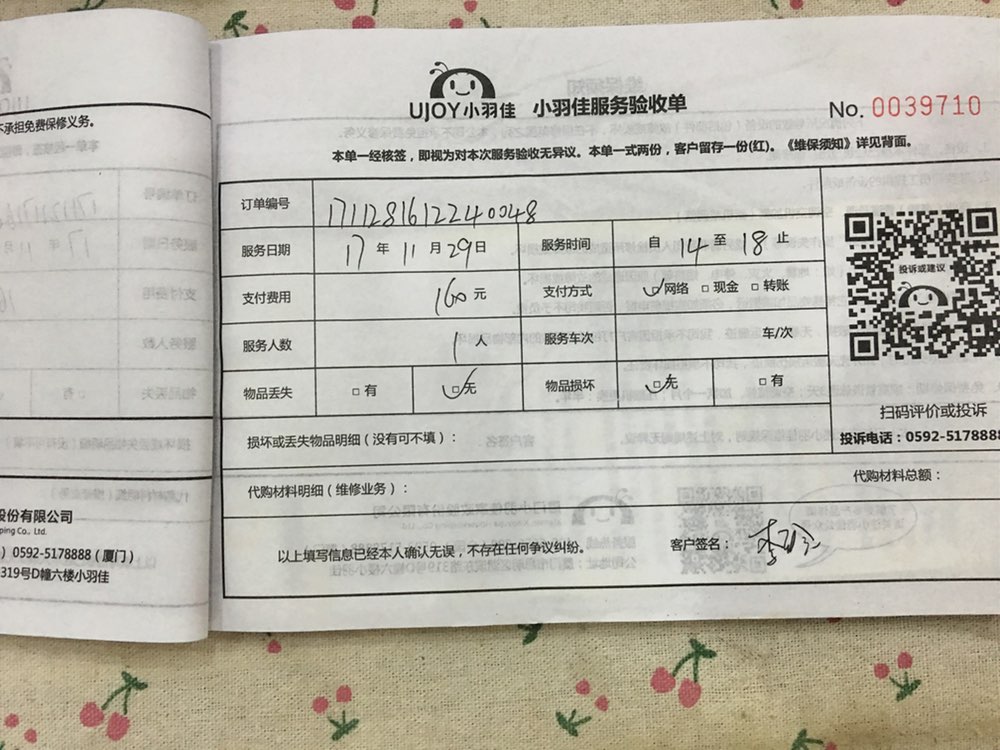 不承担免费保修义务。
股份有限公司
ping Co., Ltd.
）0592-5178888（厦门）
319号D幢六楼小羽佳
UJOY小羽佳 小羽佳服务验收单
No. 0039710
本单一经核签，即视为对本次服务验收无异议。本单一式两份，客户留存一份(红)。《维保须知》详见背面。
订单编号 1711281612240048
服务日期 17 年 11 月 29 日 服务时间 自 14 至 18 止
投诉或建议
支付费用 160 元 支付方式 ☑网络 □现金 □转账
服务人数 1 人 服务车次 车/次
物品丢失 □有 ☑无 物品损坏 ☑无 □有
扫码评价或投诉
损坏或丢失物品明细（没有可不填）：
投诉电话：0592-5178888
代购材料明细（维修业务）： 代购材料总额：
以上填写信息已经本人确认无误，不存在任何争议纠纷。 客户签名：